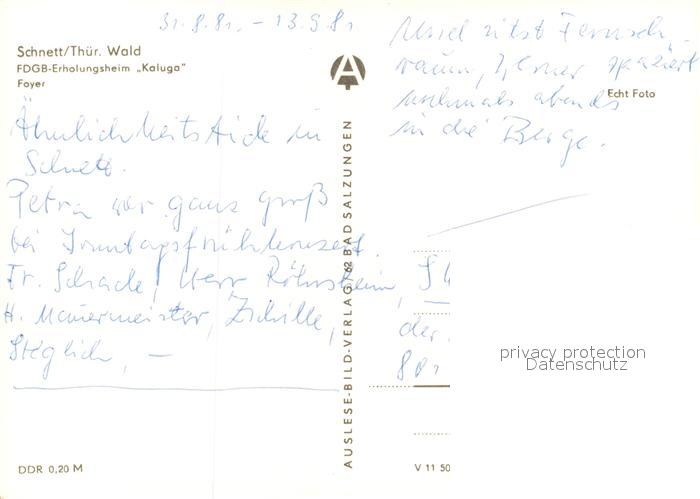 31.8.81. - 13.9.81
Schnett/Thür. Wald
FDGB-Erholungsheim „Kaluga"
Foyer
Ähnlichkeitsticke in
Schnett.
Petra war ganz groß
bei Sonntagsfrühkonzert.
Fr. Schade, Herr Röhnsheim,
H. Mauermeister, Zschille,
Steglich, —
DDR 0,20 M
AUSLESE-BILD-VERLAG 62 BAD SALZUNGEN
A
Ursel sitzt Fernseh-
raum, spaziert
nochmals abends
in die Berge.
Echt Foto
der
80
V 11 50
privacy protection
Datenschutz